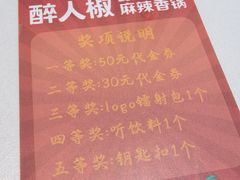 醉人椒 麻辣香锅
奖项说明
一等奖:50元代金券
二等奖:30元代金券
三等奖:logo镭射包1个
四等奖:听饮料1个
五等奖:钥匙扣1个